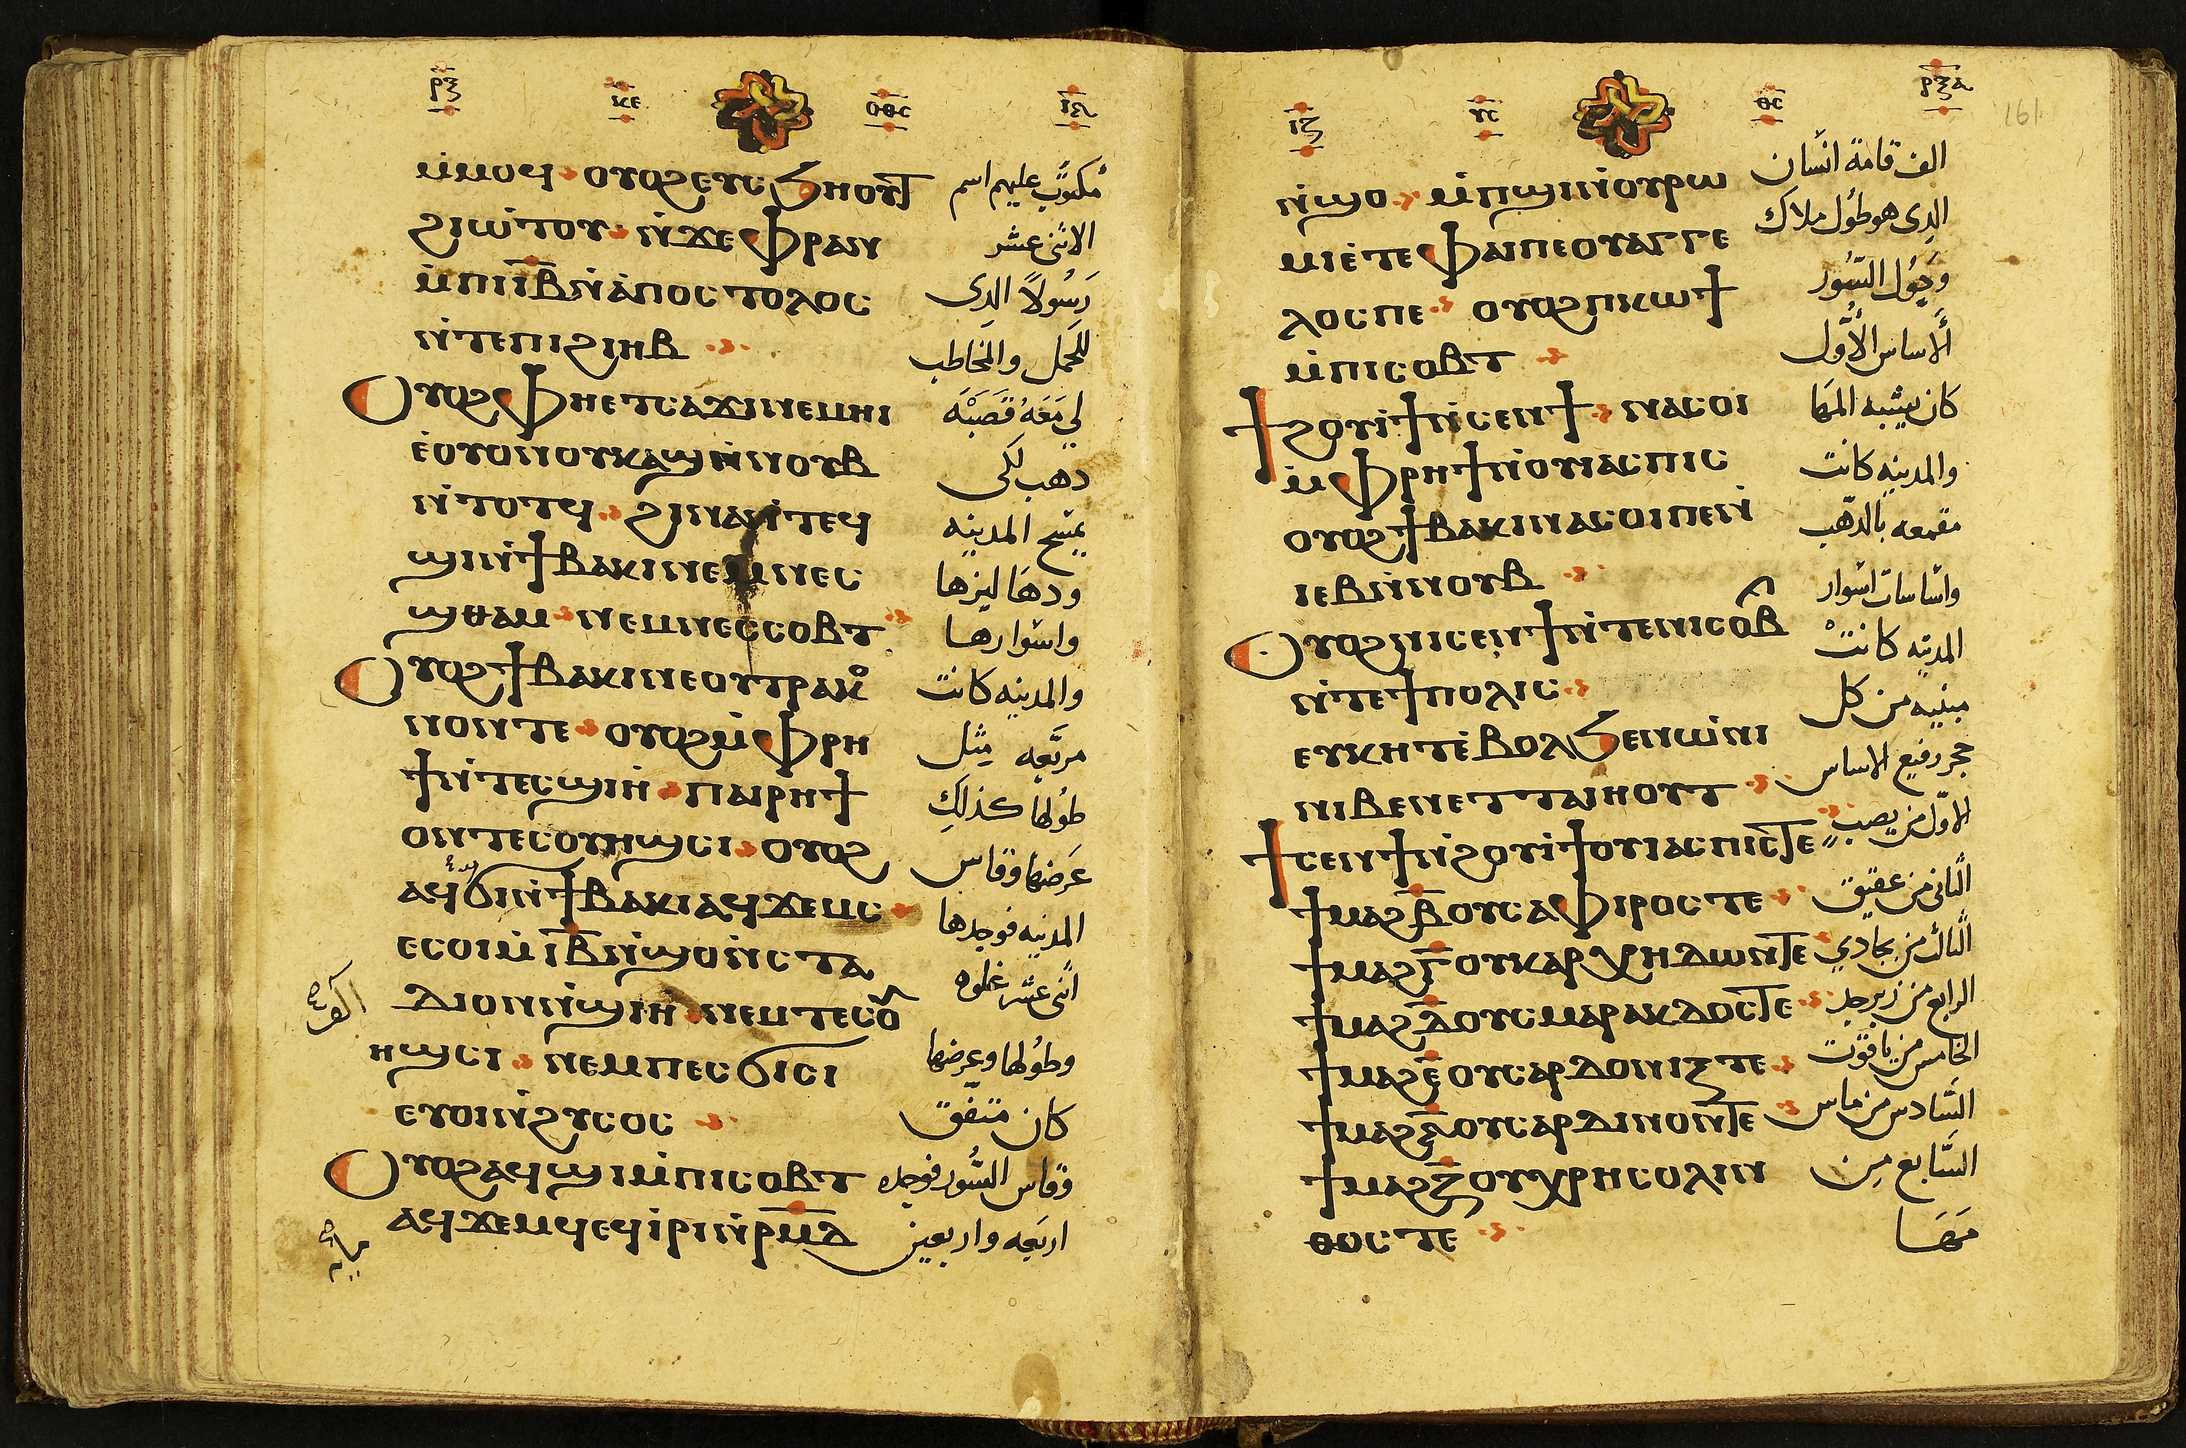 ⲣⲝ ⲕⲉ ⲑⲥ ⲓⲋ
ⲙ̀ⲙⲟϥ ⲟⲩⲟϩ ⲉⲩⲥϧⲏⲟⲩϯ
ϩⲓⲱ̀ⲧⲟⲩ ⲛ̀ϫⲉ ⲫⲣⲁⲛ
ⲙ̀ⲡⲓⲓ̅ⲃ̅ ⲛ̀ⲁ̀ⲡⲟⲥⲧⲟⲗⲟⲥ
ⲛ̀ⲧⲉ ⲡⲓϩⲓⲏⲃ
ⲟⲩⲟϩ ⲫⲏ ⲉⲧⲥⲁϫⲓ ⲛⲉⲙⲏⲓ
ⲉ̀ⲟⲩⲟⲛ ⲟⲩⲕⲁϣ ⲛ̀ⲛⲟⲩⲃ
ⲛ̀ⲧⲟⲧϥ ϩⲓⲛⲁ ⲛ̀ⲧⲉϥ
ϣⲓ ⲛ̀ϯⲃⲁⲕⲓ ⲛⲉⲙ ⲛⲉⲥ
ϣⲑⲁⲙ ⲛⲉⲙ ⲛⲉⲥⲥⲟⲃⲧ
ⲟⲩⲟϩ ϯⲃⲁⲕⲓ ⲛⲉ ⲟⲩⲧⲣⲁⲕⲟ
ⲛⲟⲛ ⲧⲉ ⲟⲩⲟϩ ⲙ̀ⲫⲣⲏ
ϯ ⲛ̀ⲧⲉⲥϣⲓⲏ ⲡⲁⲓⲣⲏϯ
ⲟⲛ ⲧⲉⲥⲟⲩⲏϣⲥⲓ ⲟⲩⲟϩ
ⲁϥϭⲓ ⲛ̀ϯⲃⲁⲕⲓ ⲁϥϫⲉⲙⲥ
ⲉⲥⲟⲓ ⲙ̀ⲓ̅ⲃ̅ ⲛ̀ϣⲟ ⲛ̀ⲥⲧⲁ
ⲇⲓⲟⲛ ⲛ̀ϣⲓⲏ ⲛⲉⲙ ⲧⲉⲥⲟⲩ
ⲏϣⲥⲓ ⲛⲉⲙ ⲡⲉⲥϭⲓⲥⲓ
ⲉⲩⲟⲓ ⲛ̀ϩⲩⲥⲟⲥ
ⲟⲩⲟϩ ⲁϥϣⲓ ⲙ̀ⲡⲓⲥⲟⲃⲧ
ⲁϥϫⲉⲙϥ ⲉϥⲓ̀ⲣⲓ ⲛ̀ⲣ̅ⲙ̅ⲇ̅
مكتوب عليهم اسم
الاثنى عشر
رسولاً الذى
للحمل والمخاطب
لى معه قصبة
ذهب لكى
يمسح المدينه
ودهاليزها
واسوارها
والمدينه كانت
مربعه مثل
طولها كذلك
عرضها وقاس
المدينه فوجدها
اثنى عشر غلوه
وطولها وعرضها
كان متفق
وقاس السور فوجده
اربعه واربعين
الف
مايه
ⲓⲍ ⲩⲥ ⲑⲥ ⲣⲝⲁ
161
ⲛ̀ϣⲟ ⲙ̀ⲡϣⲓ ⲛ̀ⲟⲩⲣⲱ
ⲙⲓ ⲉ̀ⲧⲉ ⲫⲁⲓ ⲡⲉ ⲟⲩⲁⲅⲅⲉ
ⲗⲟⲥ ⲡⲉ ⲟⲩⲟϩ ⲡⲕⲱϯ
ⲙ̀ⲡⲓⲥⲟⲃⲧ
ϯϩⲟⲩⲓϯ ⲛ̀ⲥⲉⲛϯ ⲛⲁⲥⲟⲓ
ⲙ̀ⲫⲣⲏϯ ⲛ̀ⲟⲩⲓⲁⲥⲡⲓⲥ
ⲟⲩⲟϩ ϯⲃⲁⲕⲓ ⲛⲁⲥⲟⲓ ⲡⲉ ⲛ̀
ⲓⲉⲃ ⲛ̀ⲛⲟⲩⲃ
ⲟⲩⲟϩ ⲛⲓⲥⲉⲛϯ ⲛ̀ⲧⲉ ⲛⲓⲥⲟⲃⲧ
ⲛ̀ⲧⲉ ϯⲡⲟⲗⲓⲥ
ⲉⲩⲕⲏⲧ ⲉ̀ⲃⲟⲗ ϧⲉⲛ ⲱ̀ⲛⲓ
ⲛⲓⲃⲉⲛ ⲉⲧⲧⲁⲓⲏⲟⲩⲧ
ϯⲥⲉⲛϯ ⲛ̀ϩⲟⲩⲓϯ ⲟⲩⲓⲁⲥⲡⲓⲥ ⲧⲉ
ϯⲙⲁϩⲃ̅ ⲟⲩⲥⲁⲫⲓⲣⲟⲥ ⲧⲉ
ϯⲙⲁϩⲅ̅ ⲟⲩⲕⲁⲣⲭⲏⲇⲱⲛ ⲧⲉ
ϯⲙⲁϩⲇ̅ ⲟⲩⲥⲙⲁⲣⲁⲕⲇⲟⲥ ⲧⲉ
ϯⲙⲁϩⲉ̅ ⲟⲩⲥⲁⲣⲇⲟⲛⲓⲝ ⲧⲉ
ϯⲙⲁϩⲋ̅ ⲟⲩⲥⲁⲣⲇⲓⲛⲟⲛ ⲧⲉ
ϯⲙⲁϩⲍ̅ ⲟⲩⲭⲣⲏⲥⲟⲗⲓⲛ
ⲑⲟⲥ ⲧⲉ
الف قامة انسان
الذى هو طول ملاك
وحول السور
ألاساس الأول
كان يشبه المها
والمدينه كانت
مقمعه بالذهب
واساسات اسوار
المدينه كانت
مبنيه من كل
حجر رفيع الاساس
الاول من يصب
الثانى من عقيق
الثالث من بجادي
الرابع من زبرجد
الخامس من ياقوت
السادس من ماس
السابع من
مها